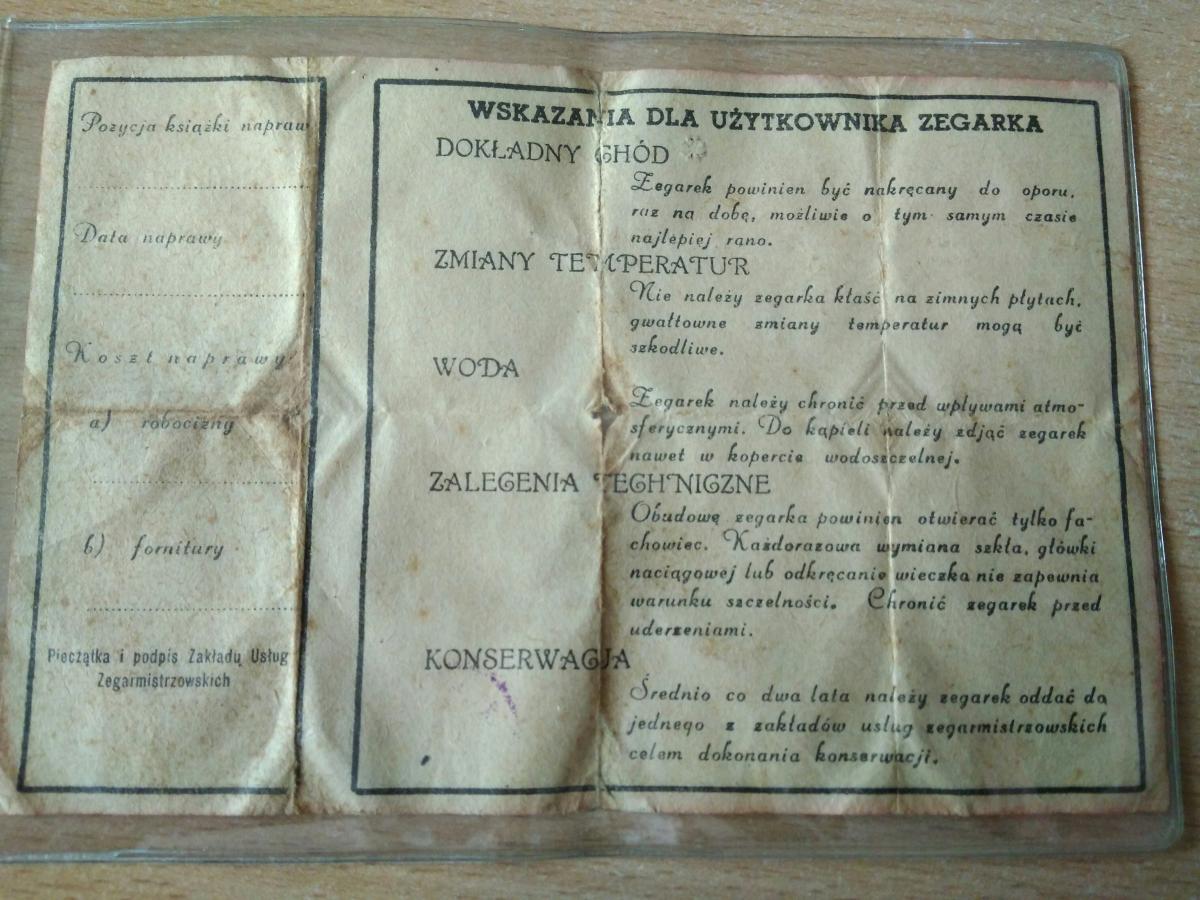 Pozycja książki napraw
Data naprawy
Koszt naprawy:
a) robocizny
b) fornitury
Pieczątka i podpis Zakładu Usług
Zegarmistrzowskich
WSKAZANIA DLA UŻYTKOWNIKA ZEGARKA
DOKŁADNY CHÓD
Zegarek powinien być nakręcany do oporu,
raz na dobę, możliwie o tym samym czasie
najlepiej rano.
ZMIANY TEMPERATUR
Nie należy zegarka kłaść na zimnych płytach,
gwałtowne zmiany temperatur mogą być
szkodliwe.
WODA
Zegarek należy chronić przed wpływami atmo-
sferycznymi. Do kąpieli należy zdjąć zegarek
nawet w kopercie wodoszczelnej.
ZALECENIA TECHNICZNE
Obudowę zegarka powinien otwierać tylko fa-
chowiec. Każdorazowa wymiana szkła, główki
naciągowej lub odkręcanie wieczka nie zapewnia
warunku szczelności. Chronić zegarek przed
uderzeniami.
KONSERWACJA
Średnio co dwa lata należy zegarek oddać do
jednego z zakładów usług zegarmistrzowskich
celem dokonania konserwacji.